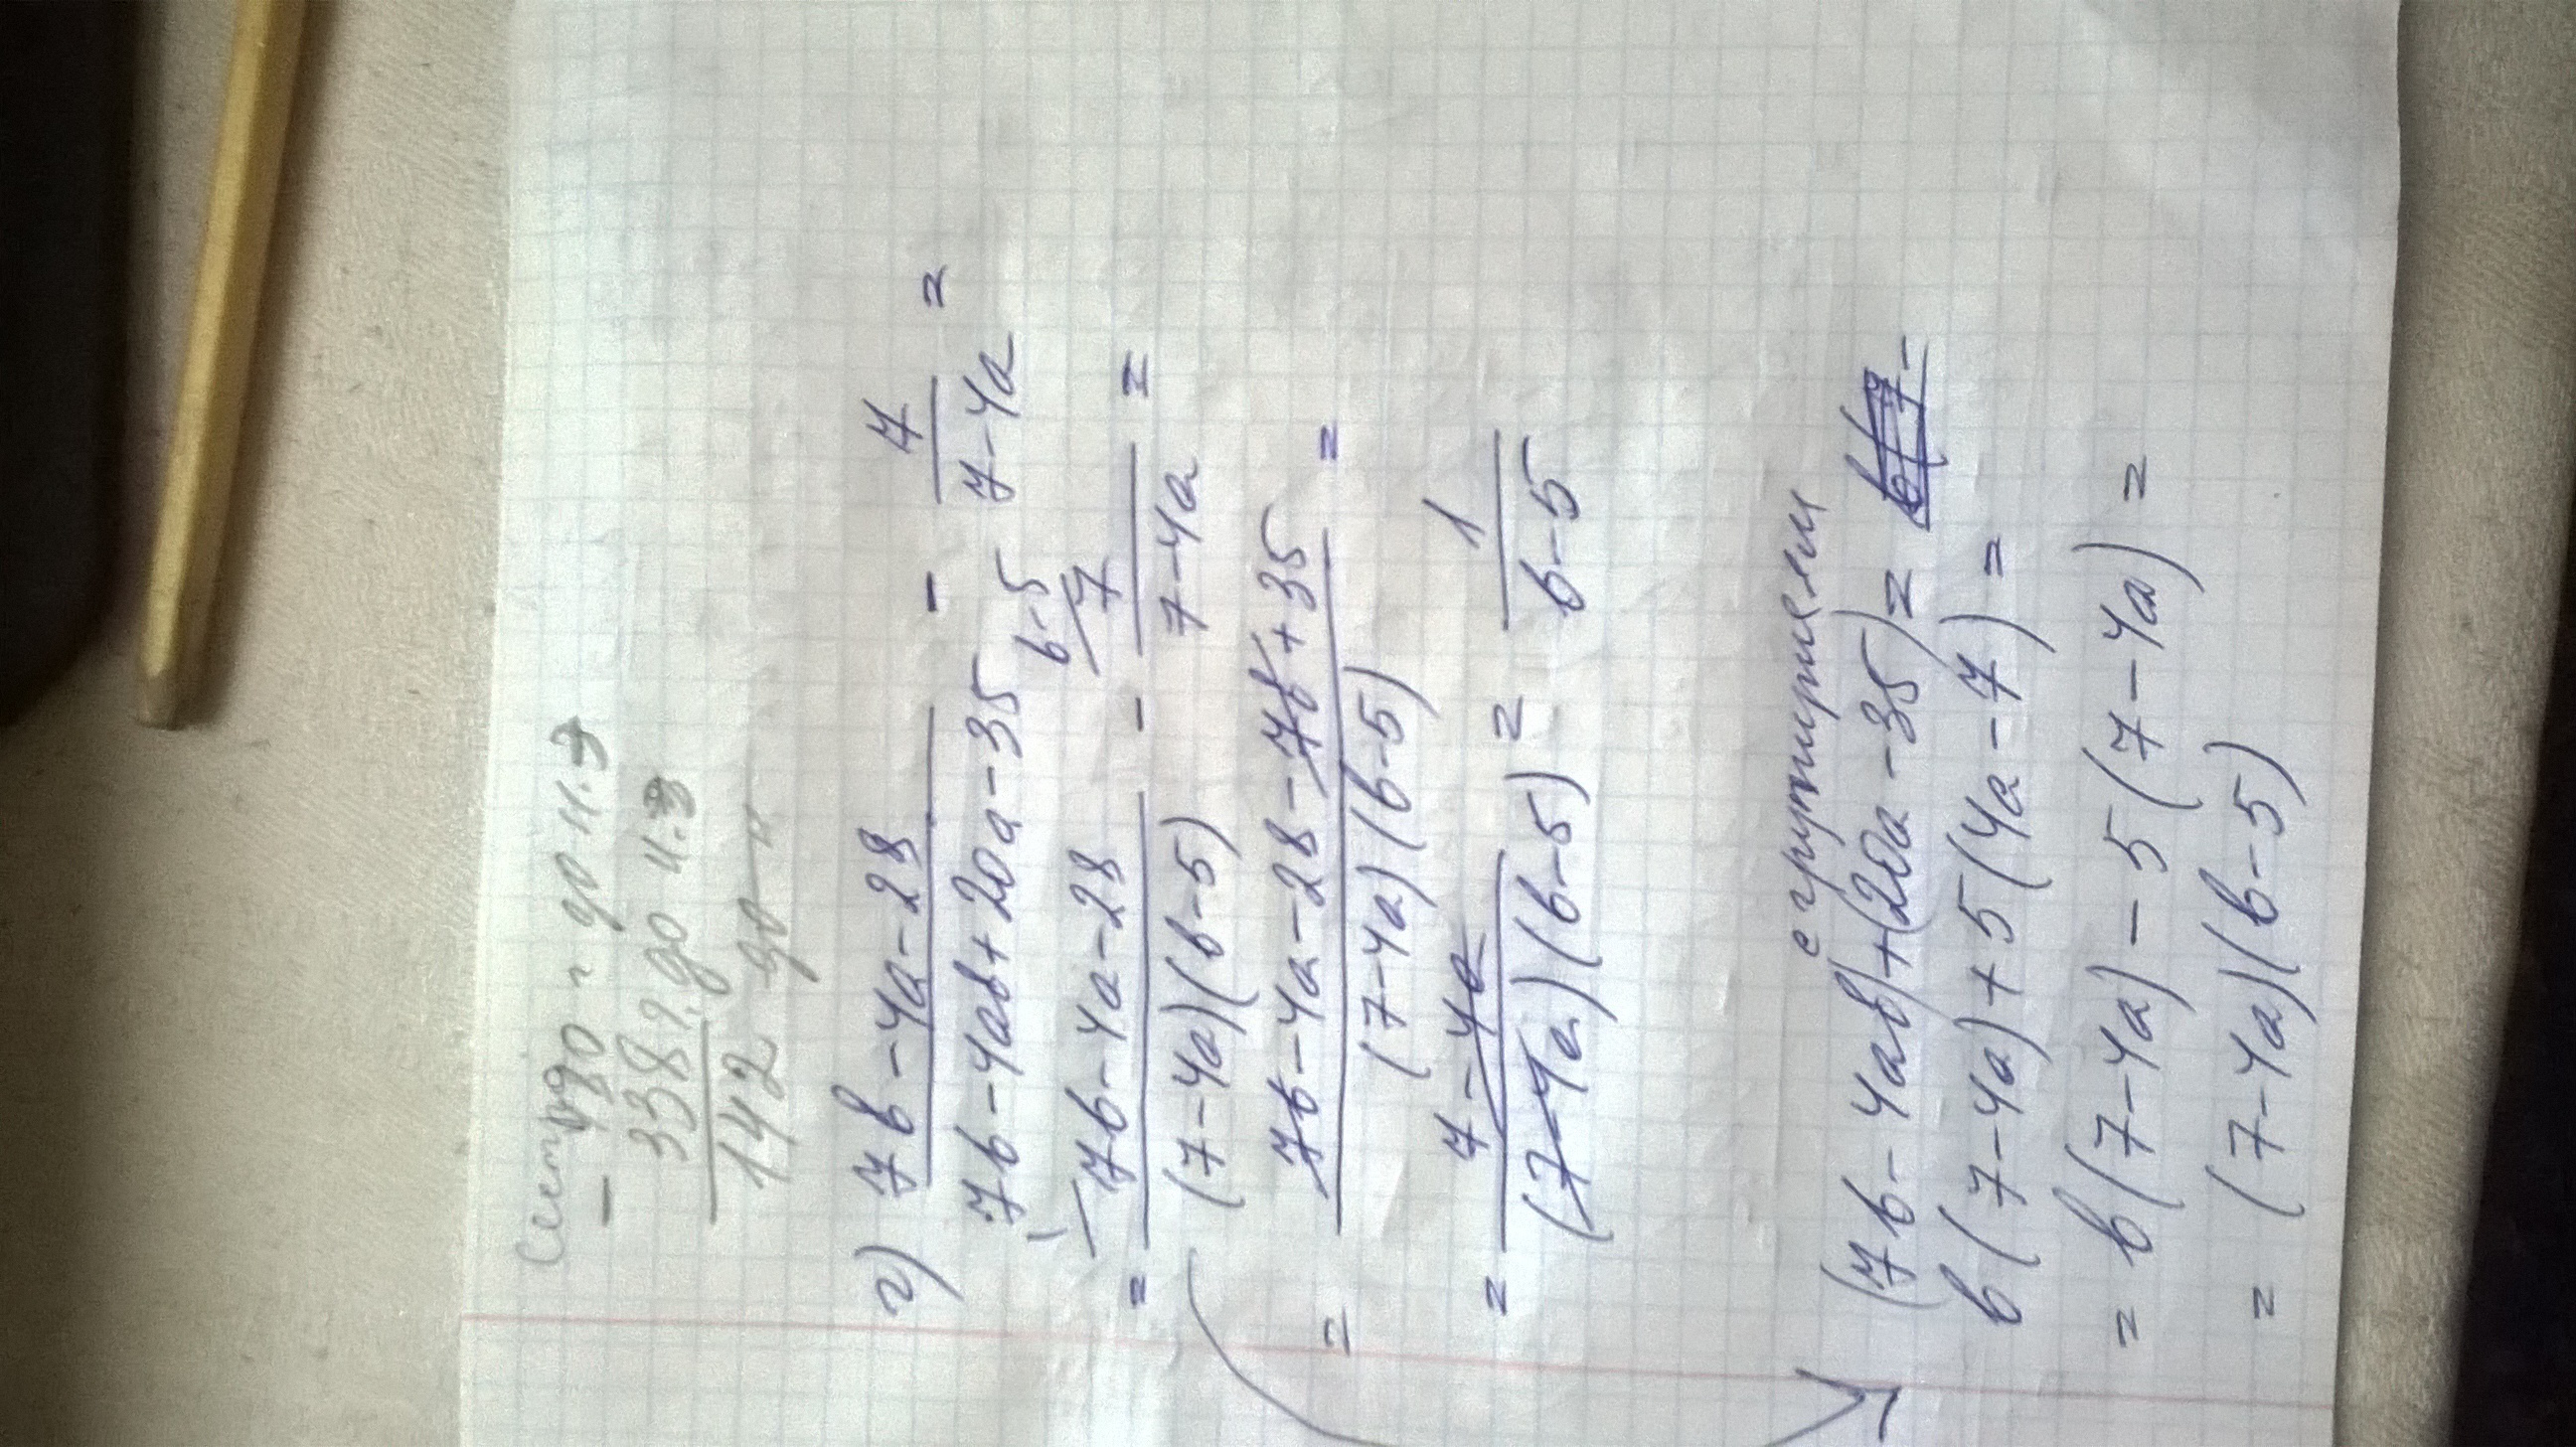 - 480 г до н.э
338 г. до н.э
142 до н
г) 7b-4a-28 / 7b-4ab+20a-35 - 7 / 7-4a =
= 7b-4a-28 / (7-4a)(b-5) - 7 / 7-4a = b-5
= 7b-4a-28-7b+35 / (7-4a)(b-5) =
= 7-4a / (7-4a)(b-5) = 1 / b-5
сгрупируем
(7b-4ab)+(20a-35)=
b(7-4a)+5(4a-7)=
= b(7-4a)-5(7-4a)=
= (7-4a)(b-5)